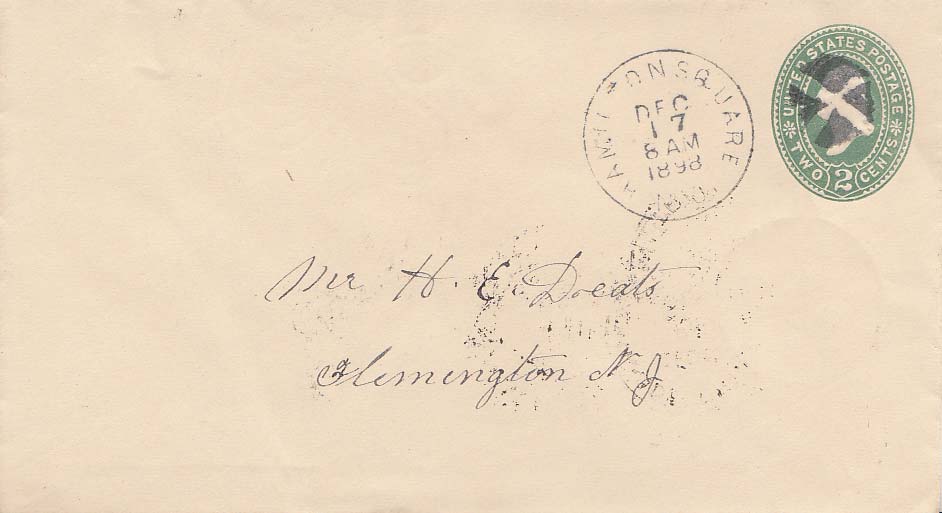 UNITED STATES POSTAGE
TWO 2 CENTS
ONSQUARE
DEC
17
8 AM
1898
Mr. H. E. Doeats
Flemington N. J.